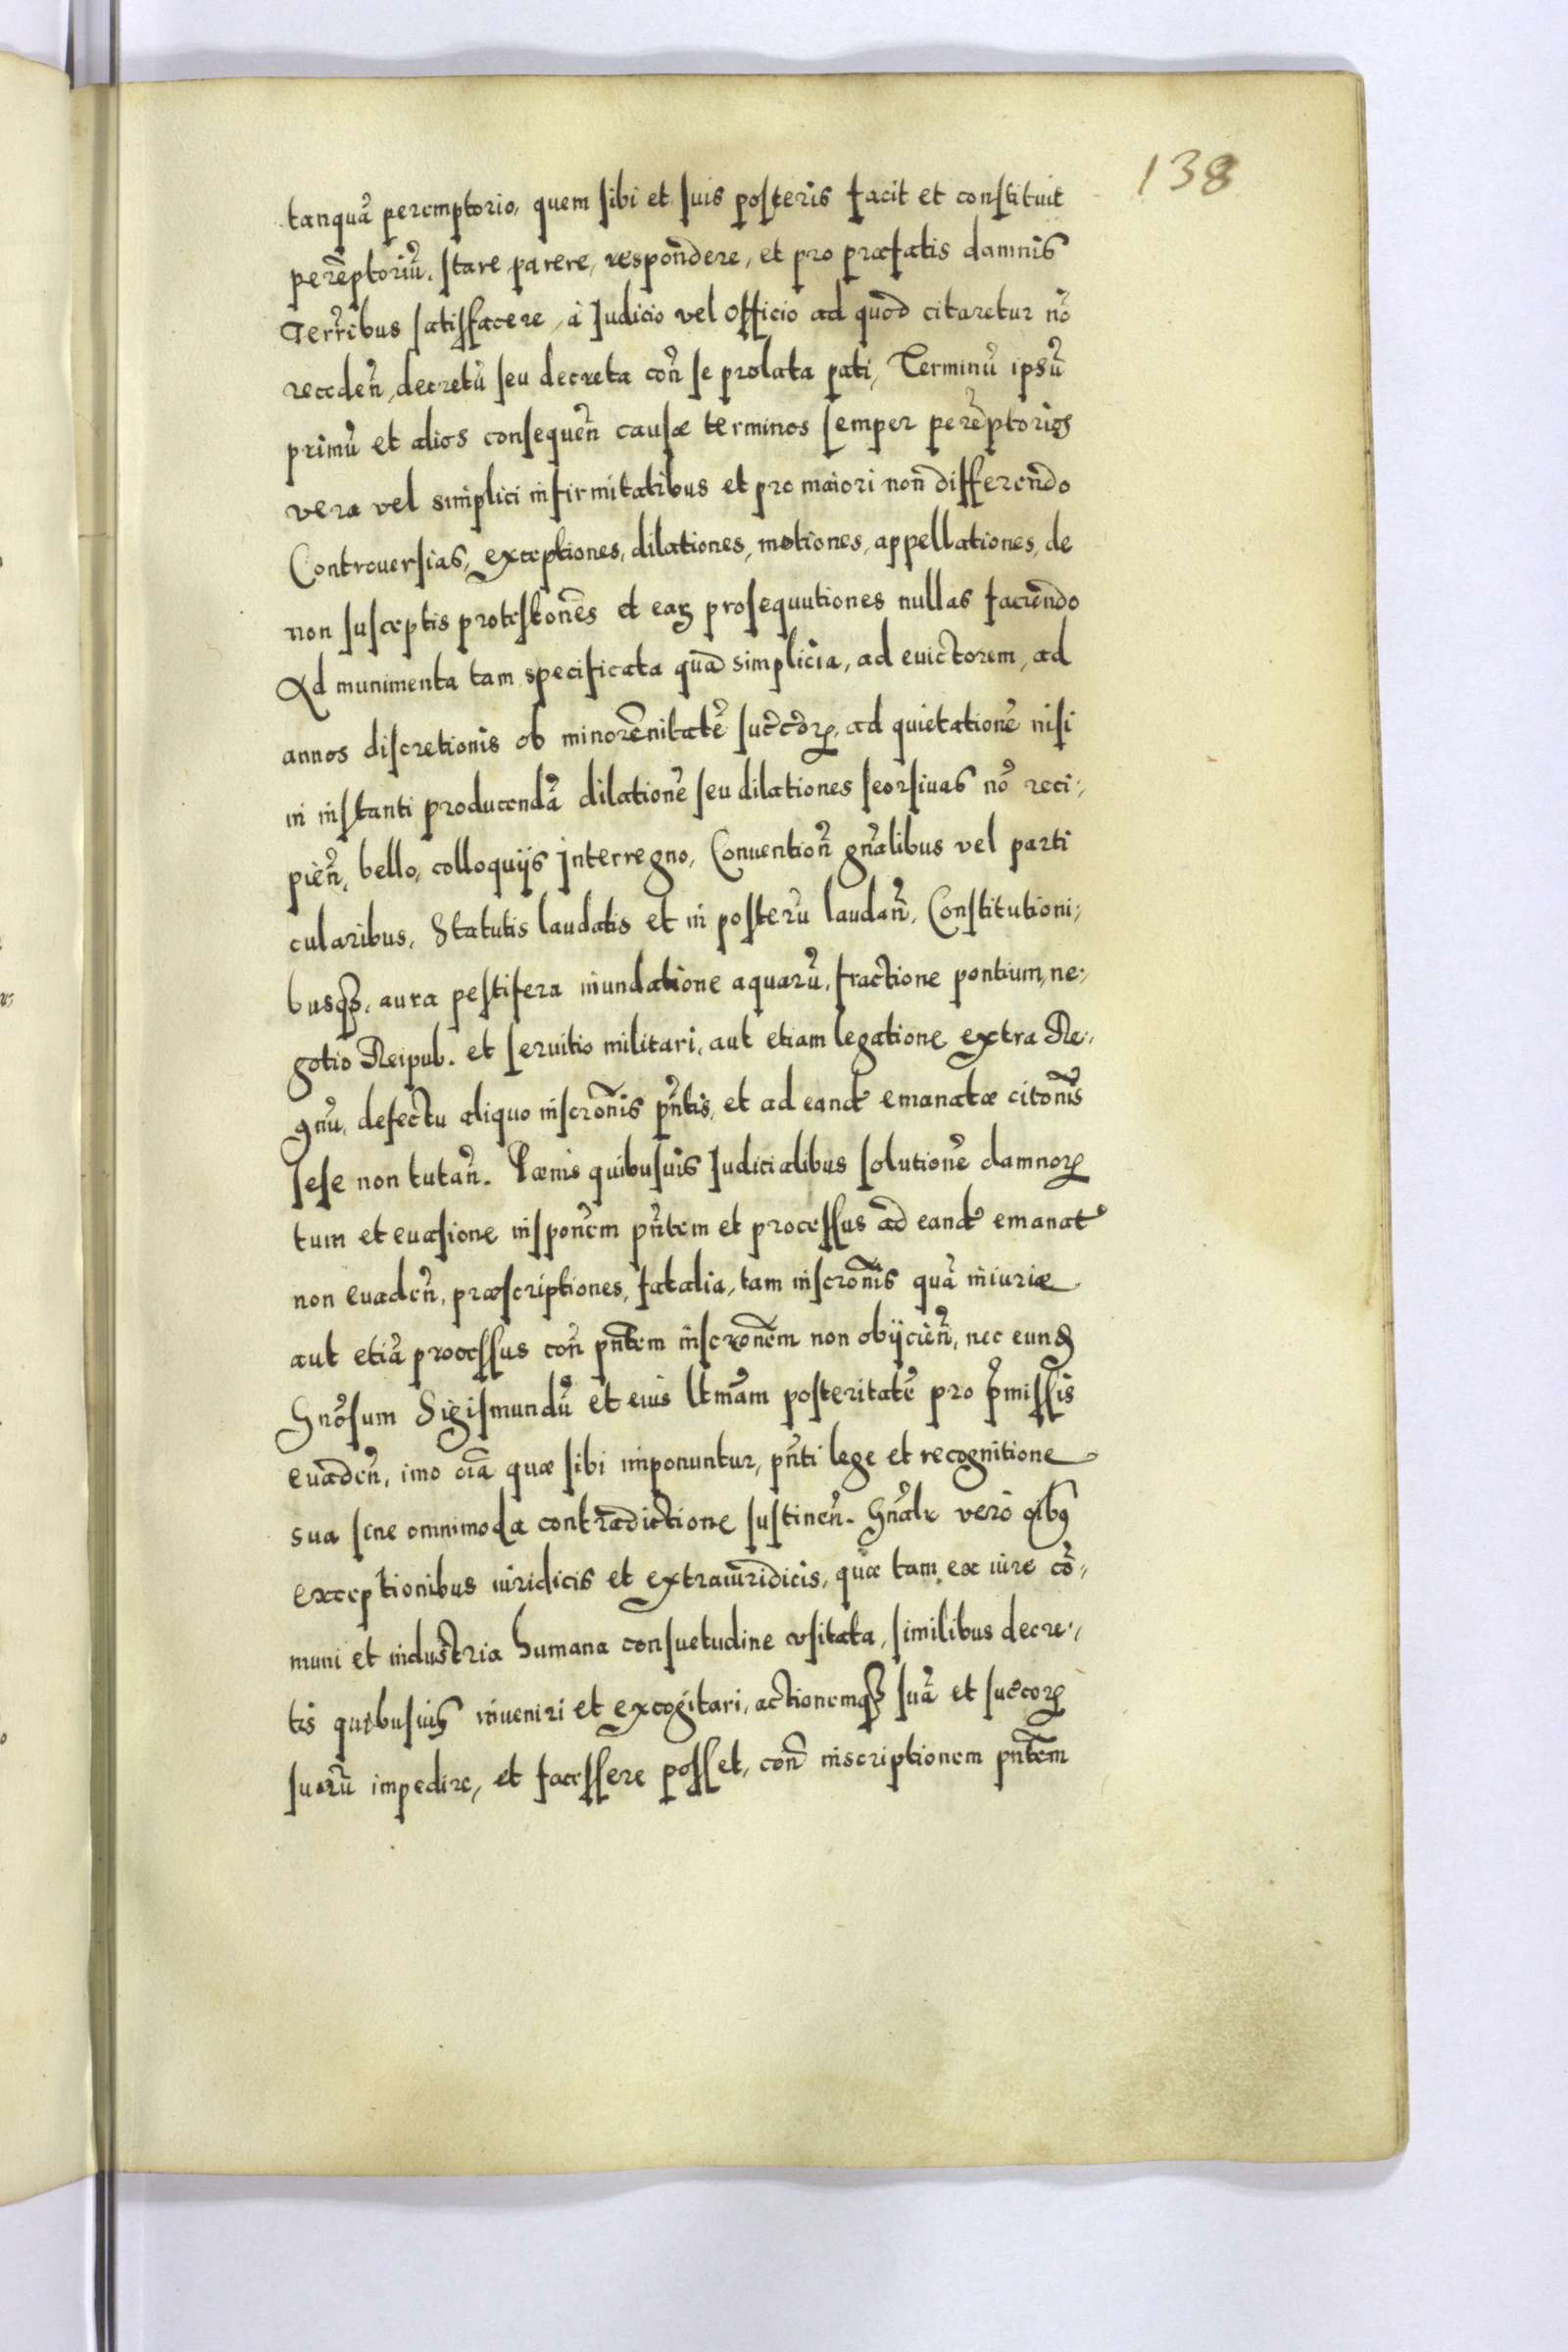 138
tanquā peremptorio, quem sibi et suis posteris facit et constituit
perēptoriū, stare, parere, respondere, et pro præfatis damnis
Terrībus satisfacere, à Judicio vel Officio ad quod citaretur nō
receden̄, decretū seu decreta con̄ se prolata pati, Terminū ipsū
primū et alios consequen̄ causæ terminos semper perēptorios
vera vel simplici infirmitatibus et pro maiori non differendo
Controuersias, exceptiones, dilationes, motiones, appellationes, de
non susceptis protestōnes et earꝫ prosequutiones nullas faciendo
Ad munimenta tam specificata quā simplicia, ad euictorem, ad
annos discretionis ob minorēnitatē succ̄orꝝ, ad quietationē nisi
in instanti producendā dilationē seu dilationes seorsiuas nō reci-
pien̄, bello, colloquijs Interregno, Conuention̄ gn̄alibus vel parti
cularibus, Statutis laudatis et in posterū laudan̄, Constitutioni-
busqꝫ, aura pestifera inundatione aquarū, fractione pontium, ne-
gotio Reipub. et seruitio militari, aut etiam legatione extra Re-
gnū, defectu aliquo inscrōnis pn̄tis, et ad eandē emanatæ citōnis
sese non tutan̄. Pœnis quibusuis Judicialibus solutionē damnorꝝ
tum et euasione inspōnem pn̄tem et processus ad eandē emanat̄
non euaden̄, præscriptiones, fatalia, tam inscrōnis quā iniuriæ
aut etiā processus con̄ pn̄tem inscrōnem non obijcien̄, nec eund
Gnōsum Sigismundū et eius ltm̄am posteritatē pro p̄missis
euaden̄, imo oīa quæ sibi imponuntur, pn̄ti lege et recognitione
sua sine omnimoda contradictione sustinen̄. Gn̄alr vero oībꝰ
exceptionibus iuridicis et extraiuridicis, quæ tam ex iure cō-
muni et industria humana consuetudine vsitata, similibus decre-
tis quibusuis inueniri et excogitari, actionemqꝫ suā et succorꝝ
suorū impedire, et facessere posset, con̄ inscriptionem pn̄tem